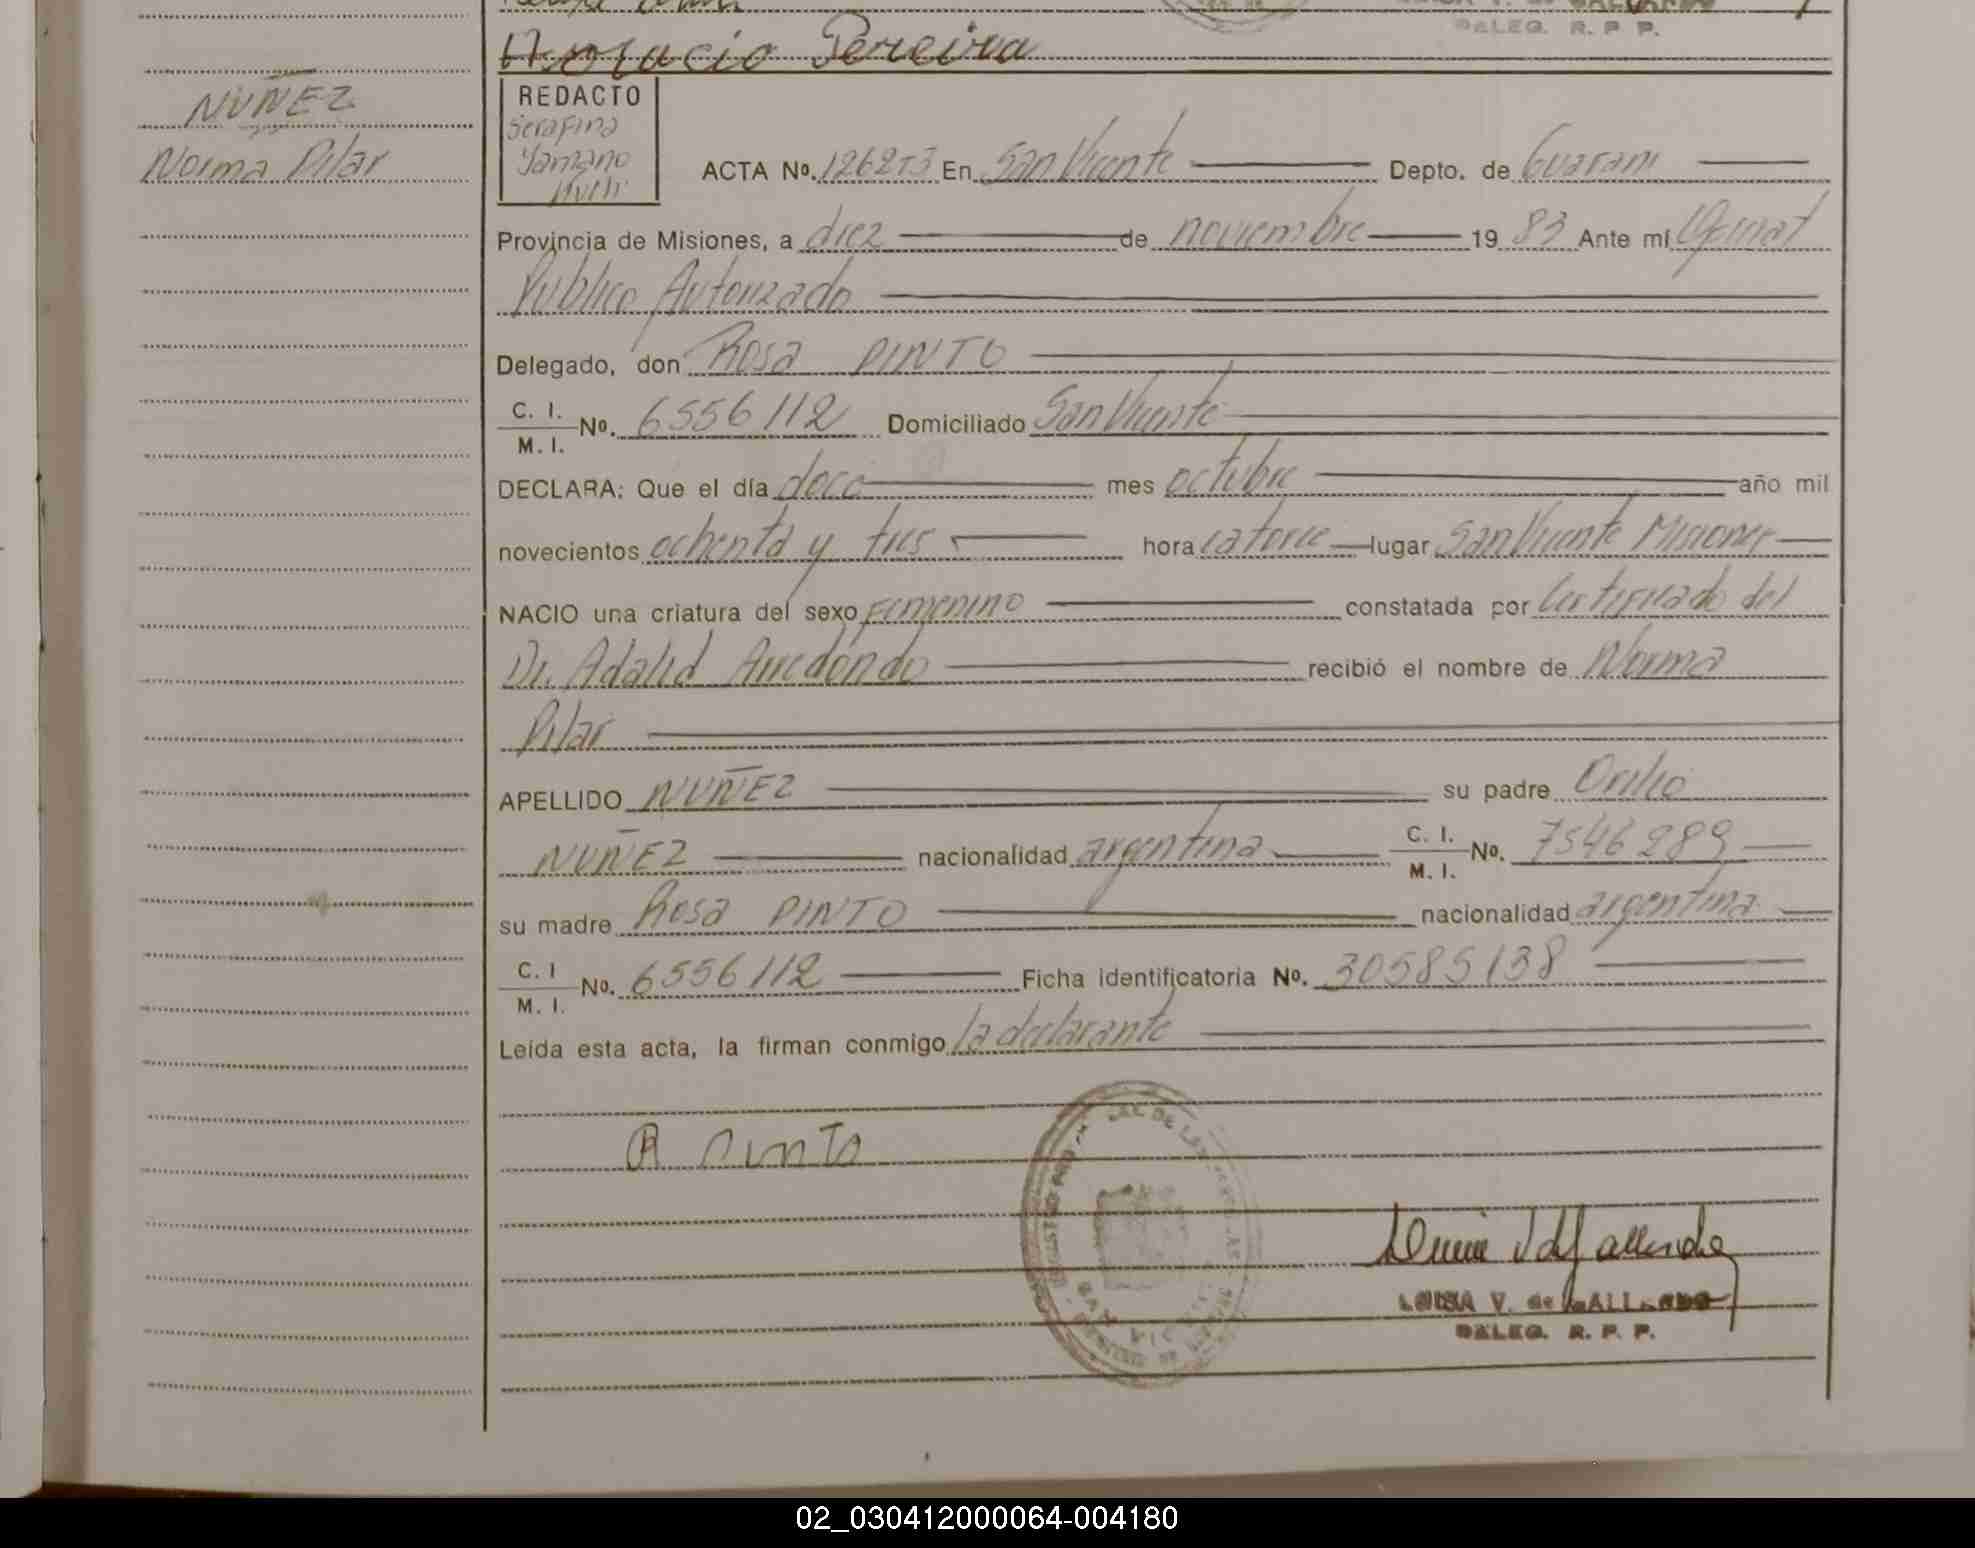 Horacio Pereira
DELEG. R. P. P.
NUÑEZ
Norma Pilar
REDACTO
Serafina
Yamano
ACTA Nº. En San Vicente Depto. de Guarani
Provincia de Misiones, a diez de noviembre 19 83 Ante mí Oficial
Publico Autorizado
Delegado, don Rosa PINTO
C. I.
M. I. Nº. 6556112 Domiciliado San Vicente
DECLARA: Que el día doce mes octubre año mil
novecientos ochenta y tres hora catorce lugar San Vicente Misiones
NACIO una criatura del sexo Femenino constatada por Certificado del
Dr. Adalid Arredondo recibió el nombre de Norma
Pilar
APELLIDO NUÑEZ su padre
NUÑEZ nacionalidad argentina C. I.
M. I. Nº. 7546289
su madre Rosa PINTO nacionalidad argentina
C. I
M. I. Nº. 6556112 Ficha identificatoria Nº. 30585138
Leída esta acta, la firman conmigo la declarante
R Pinto
LUISA V. de GALLARDO
DELEG. R. P. P.
02_030412000064-004180